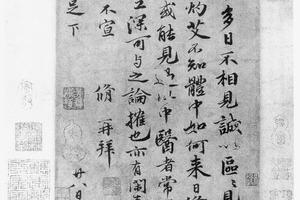 多日不相見誠以區區見
灼艾不知體中如何来日
或能見過
中醫者常
工深可与之論推也亦有閑
不宣
脩再拜
廿八日
足下